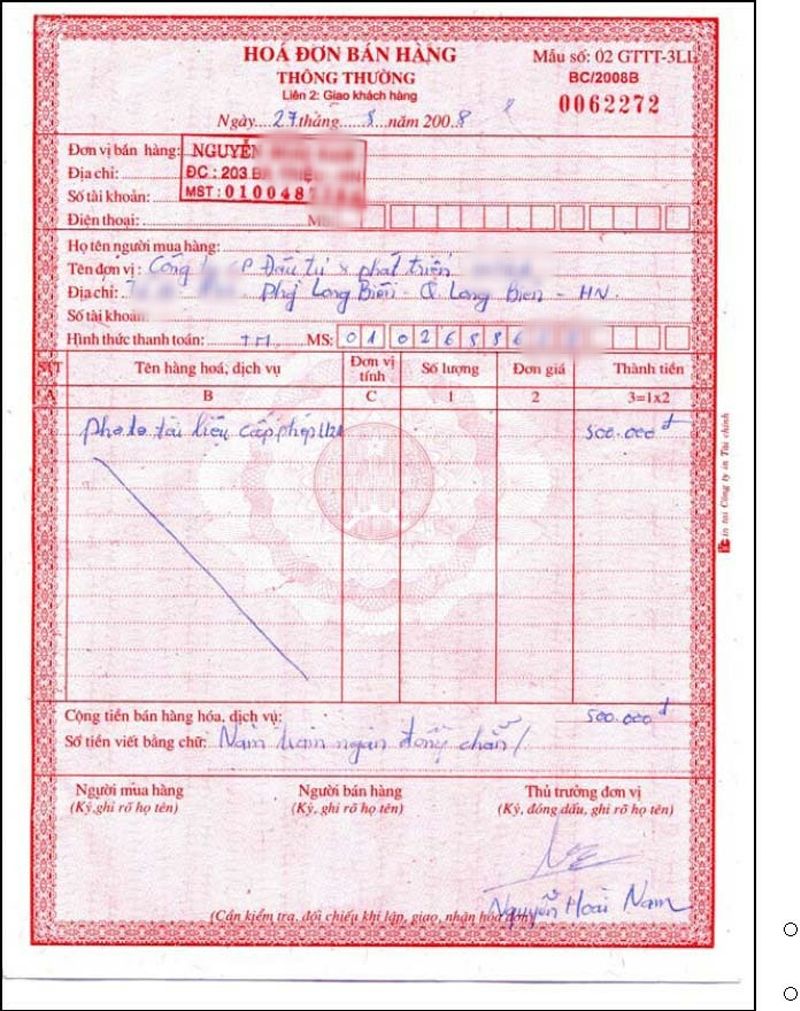 HOÁ ĐƠN BÁN HÀNG
THÔNG THƯỜNG
Liên 2: Giao khách hàng
Mẫu số: 02 GTTT-3LL
BC/2008B
0062272
Ngày....27tháng.....8.năm 200.8
Đơn vị bán hàng: NGUYỄN
Địa chỉ: ĐC : 203
Số tài khoản: MST : 0100487
Điện thoại:
Họ tên người mua hàng:
Tên đơn vị : Công ty CP Đầu tư & phát triển
Địa chỉ: Long Biên - Q. Long Biên - HN.
Số tài khoản
Hình thức thanh toán: TM MS: 0102658
STT Tên hàng hoá, dịch vụ Đơn vị tính Số lượng Đơn giá Thành tiền
A B C 1 2 3=1x2
photo tài liệu cấp phép 500.000đ
Cộng tiền bán hàng hóa, dịch vụ: 500.000đ
Số tiền viết bằng chữ: Năm trăm ngàn đồng chẵn/
Người mua hàng Người bán hàng Thủ trưởng đơn vị
(Ký,ghi rõ họ tên) (Ký, ghi rõ họ tên) (Ký, đóng dấu, ghi rõ họ tên)
Nguyễn Hoài Nam
(Cần kiểm tra, đối chiếu khi lập, giao, nhận hóa đơn)
In tại Công ty in Tài chính